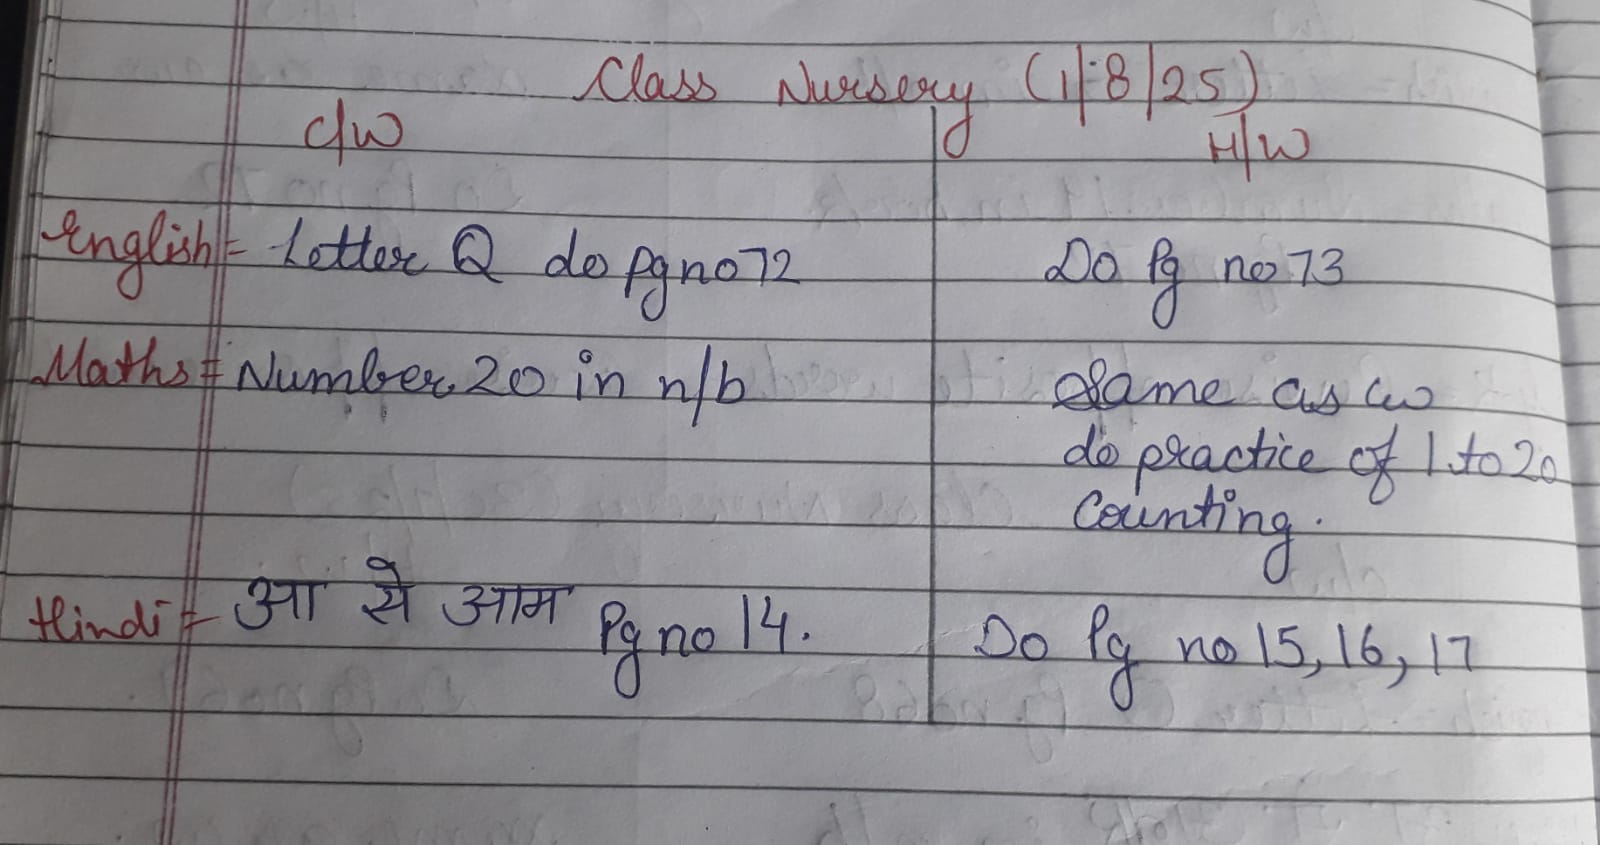 Class Nursery (1/8/25)
C/W H/W
English = Letter Q do pg no 72 Do Pg no 73
Maths = Number 20 in n/b Same as cw
do practice of 1 to 20
Counting.
Hindi = आ से आम Pg no 14. Do Pg no 15, 16, 17